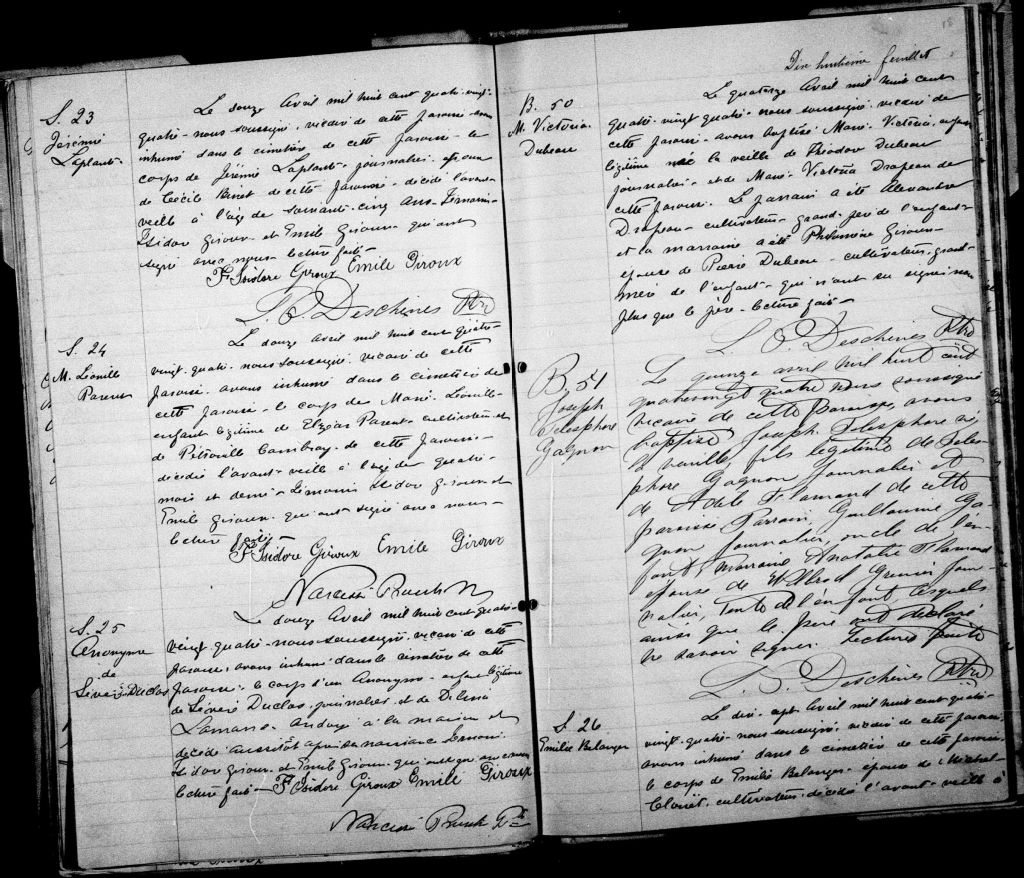 S. 23
Jérémie
Laplante
Le douze Avril mil huit cent quatre-vingt-
quatre - nous soussigné, vicaire de cette Paroisse - avons
inhumé dans le cimetière de cette Paroisse - le
corps de Jérémie Laplante - journalier, époux
de Cécile Binet de cette Paroisse - décédé l'avant-
veille à l'âge de soixante-cinq ans. Témoins
Isidore Giroux et Emile Giroux - qui ont
signé avec nous. Lecture faite -
F. Isidore Giroux Emile Giroux
L. O. Deschênes Ptre
S. 24
M. Léonille
Parent
Le douze Avril mil huit cent quatre-
vingt-quatre - nous soussigné, vicaire de cette
Paroisse, avons inhumé dans le cimetière de
cette Paroisse - le corps de Marie-Léonille
enfant légitime de Elzéar Parent - cultivateur et
de de cette Paroisse -
décédée l'avant-veille à l'âge de quatre
mois et demi - Témoins Isidore Giroux et
Emile Giroux qui ont signé avec nous -
Lecture faite -
F. Isidore Giroux Emile Giroux
Narcisse
S. 25
Anonyme
de
Sévère Duclos
Le douze Avril mil huit cent quatre-
vingt-quatre - nous soussigné, vicaire de cette
Paroisse, avons inhumé dans le cimetière de cette
Paroisse - le corps d'un Anonyme - enfant légitime
de Sévère Duclos, journalier, et de Delima
Lamarre. Ondoyé à la maison et
décédé aussitôt après sa naissance. Témoins
Isidore Giroux et Emile Giroux - qui ont signé avec nous
Lecture faite - F. Isidore Giroux Emile Giroux
Narcisse
18
Dix huitième feuillet
B. 50
M. Victoria
Dubeau
Le quatorze Avril mil huit cent
quatre-vingt quatre - nous soussigné, vicaire de
cette Paroisse - avons baptisé Marie-Victoria, enfant
légitime née la veille de Théodore Dubeau
journalier - et de Marie-Victoria Drapeau de
cette Paroisse. Le parrain a été Alexandre
Drapeau - cultivateur - grand-père de l'enfant -
et la marraine a été Philomène Giroux -
épouse de Pierre Dubeau - cultivateur, grand-
mère de l'enfant - qui n'ont su signer non
plus que le père. Lecture faite -
L. O. Deschênes Ptre
B. 51
Joseph
Telesphore
Gagnon
Le quinze avril mil huit cent
quatrevingt quatre nous soussigné
vicaire de cette Paroisse, avons
baptisé Joseph Telesphore né
la veille, fils légitime de Teles-
phore Gagnon journalier et
de Adele Flamand de cette
paroisse Parrain, Guillaume Ga-
gnon journalier, oncle de l'en-
fant, marraine Anatalie Flamand
épouse de Grenier jour-
nalier, tante de l'enfant lesquels
ainsi que le père ont déclaré
ne savoir signer. Lecture faite
L. O. Deschênes Ptre
S. 26
Emilie Belanger
Le dix-sept Avril mil huit cent quatre-
vingt-quatre - nous soussigné, vicaire de cette Paroisse,
avons inhumé dans le cimetière de cette Paroisse,
le corps de Emilie Belanger - épouse de Michel
Clouet - cultivateur - décédée l'avant-veille à